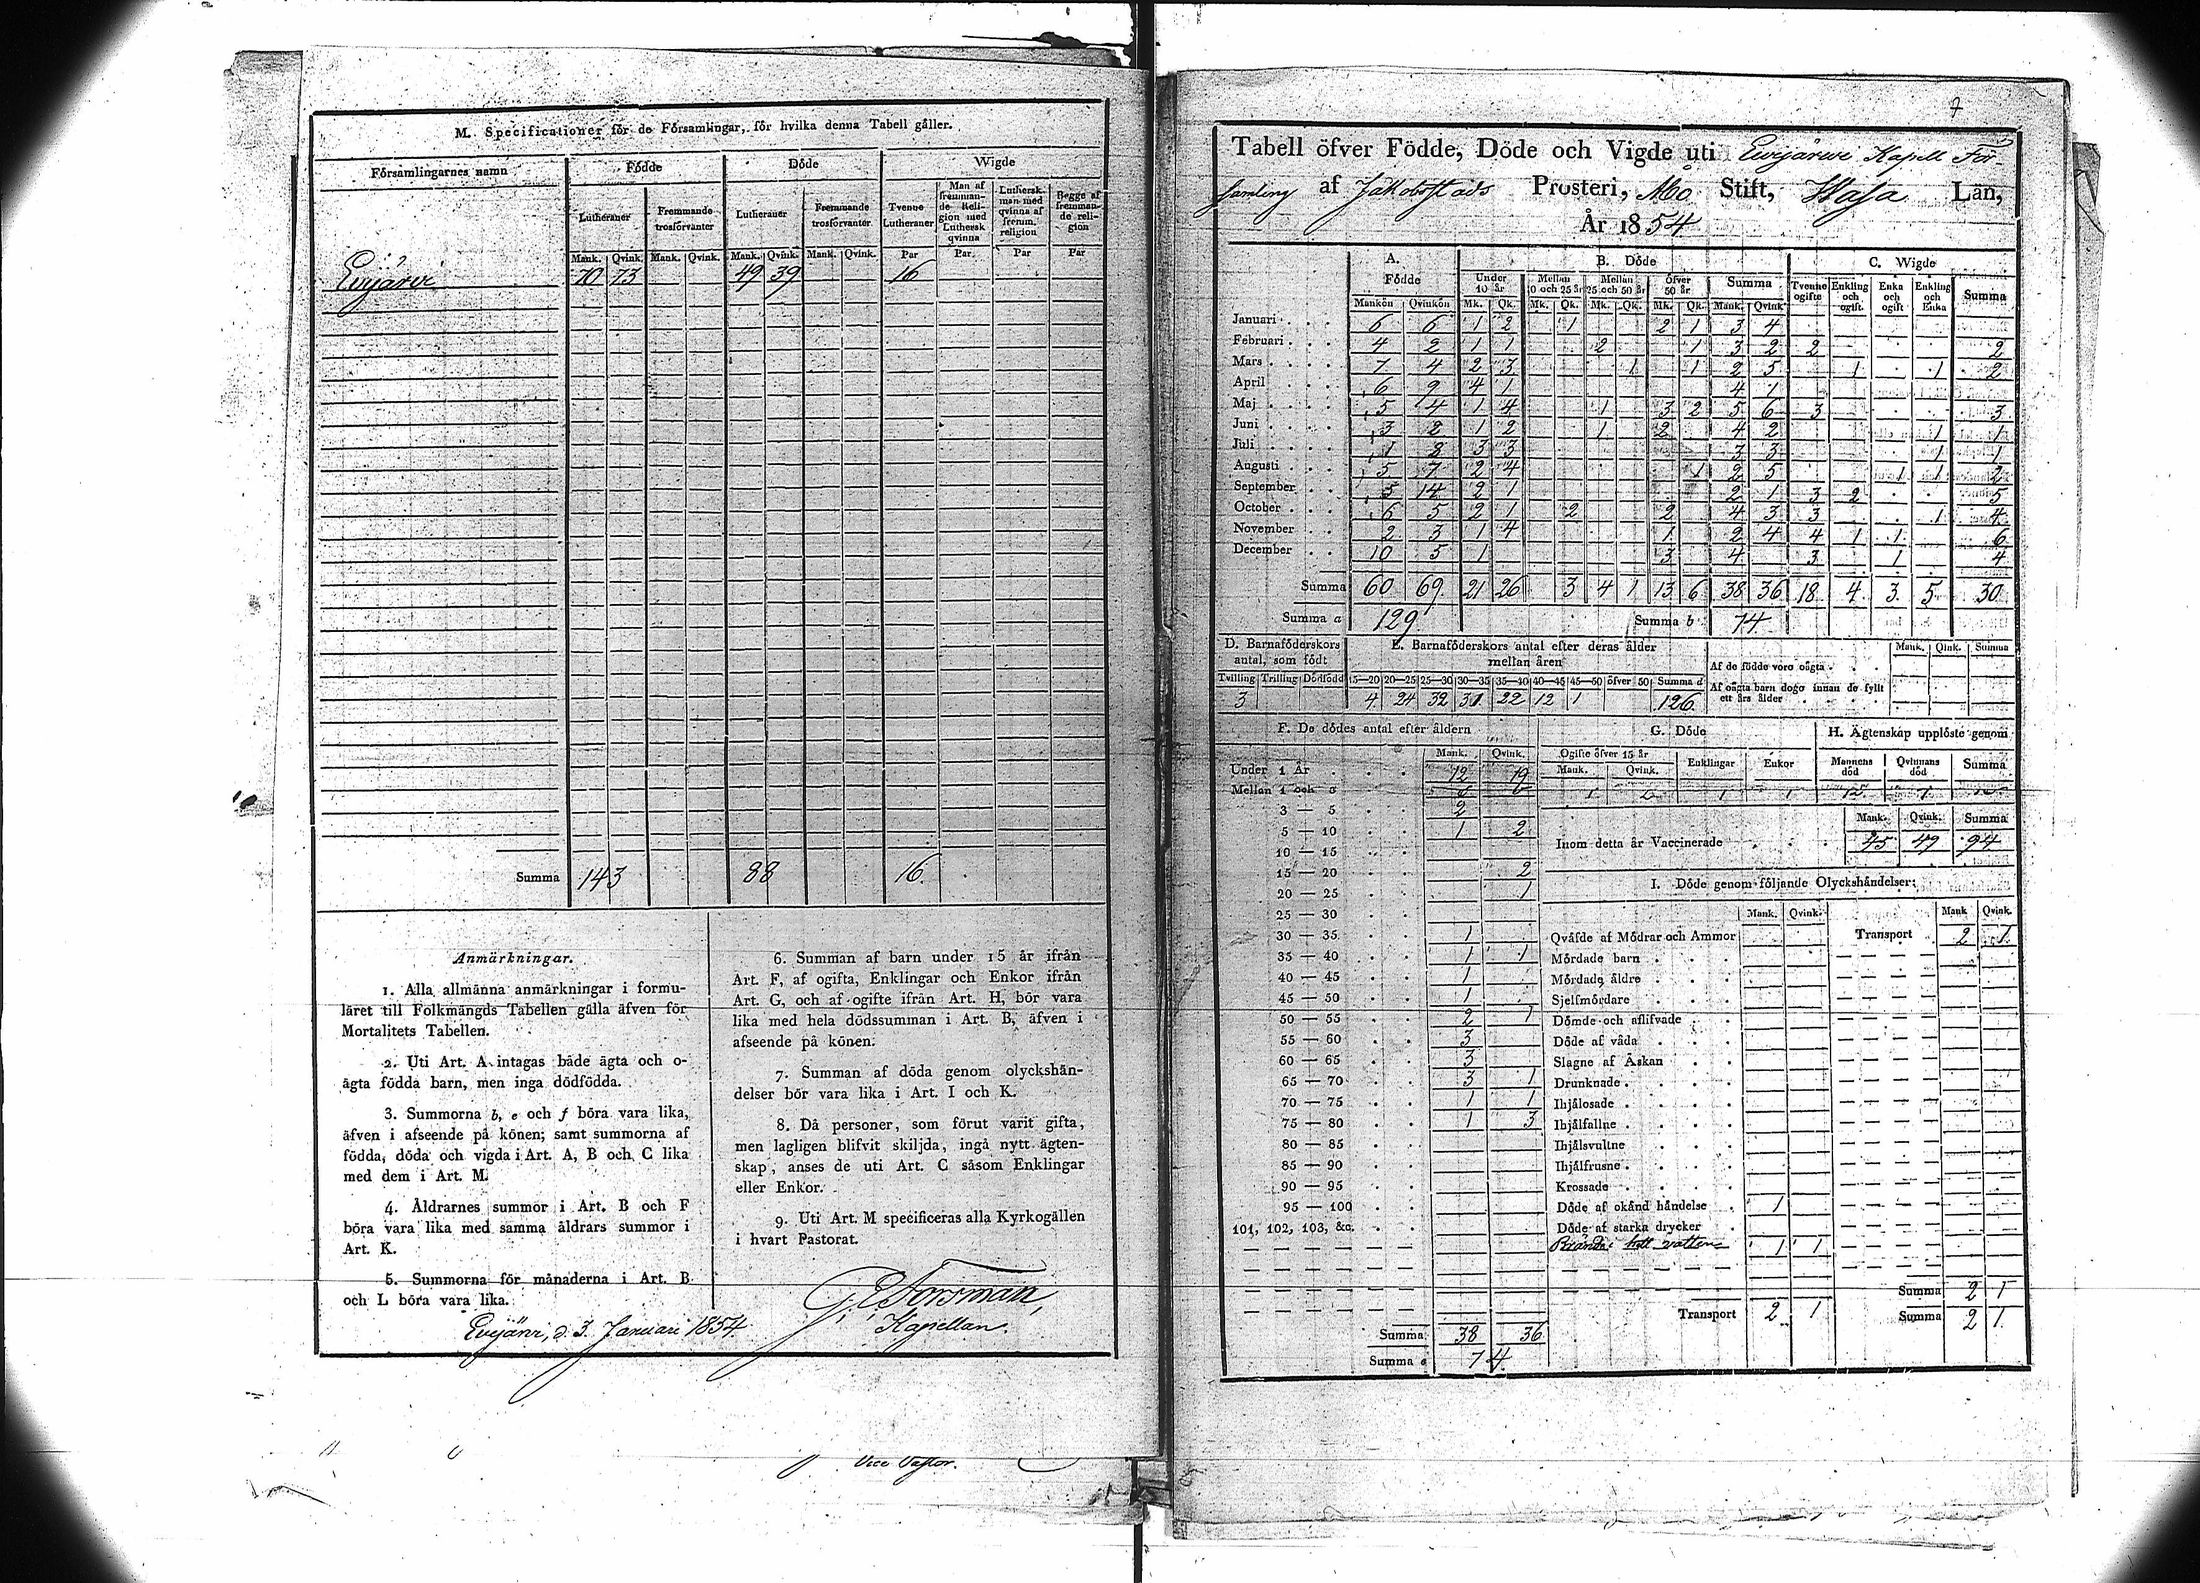 M. Specificationer för de Församlingar, för hvilka denna Tabell gäller.
Församlingarnes namn Födde Döde Wigde
Lutheraner Fremmande trosförvanter Lutheraner Fremmande trosförvanter Tvenne Lutheraner Man af fremmande Religion med Luthersk qvinna Luthersk man med qvinna af fremm. religion Begge af fremmande religion
Mank. Qvink. Mank. Qvink. Mank. Qvink. Mank. Qvink. Par Par. Par Par
Evijärvi 70 73 49 39 16
Summa 143 88 16.
Anmärkningar.
1. Alla allmänna anmärkningar i formu-
läret till Folkmängds Tabellen gälla äfven för
Mortalitets Tabellen.
2. Uti Art. A intagas både ägta och o-
ägta födda barn, men inga dödfödda.
3. Summorna b, e och f böra vara lika,
äfven i afseende på könen; samt summorna af
födda, döda och vigda i Art. A, B och C lika
med dem i Art. M.
4. Åldrarnes summor i Art. B och F
böra vara lika med samma åldrars summor i
Art. K.
5. Summorna för månaderna i Art. B
och L böra vara lika.
6. Summan af barn under 15 år ifrån
Art. F, af ogifta, Enklingar och Enkor ifrån
Art. G, och af ogifte ifrån Art. H, bör vara
lika med hela dödssumman i Art. B, äfven i
afseende på könen.
7. Summan af döda genom olyckshän-
delser bör vara lika i Art. I och K.
8. Då personer, som förut varit gifta,
men lagligen blifvit skiljda, ingå nytt ägten-
skap, anses de uti Art. C såsom Enklingar
eller Enkor.
9. Uti Art. M specificeras alla Kyrkogällen
i hvart Pastorat.
Evijärvi, d. 3. Januari 1854.
G. E. Forsman,
Kapellan.
Vice Pastor.
7
Tabell öfver Födde, Döde och Vigde uti Evijärvi Kapell För-
samling af Jakobstads Prosteri, Åbo Stift, Wasa Län,
År 1854.
A. Födde B. Döde C. Wigde
Under 10 år Mellan 10 och 25 år Mellan 25 och 50 år Öfver 50 år Summa Tvenne ogifte Enkling och ogift. Enka och ogift Enkling och Enka Summa
Mankön Qvinkön Mk. Qk. Mk. Qk. Mk. Qk. Mk. Qk. Mank. Qvink
Januari 6 6 1 2 1 2 1 3 4
Februari 4 2 1 1 2 1 3 2 2 2
Mars 7 4 2 3 1 1 2 5 1 1 2
April 6 9 4 1 4 1
Maj 5 4 1 4 1 3 2 5 6 3 3
Juni 3 2 1 2 1 2 4 2 1 1
Juli 1 8 3 3 3 3 1 1
Augusti 5 7 2 4 1 2 5 1 1 2
September 5 14 2 1 2 1 3 2 5
October 6 5 2 1 2 2 4 3 3 1 4
November 2 3 1 4 1 2 4 4 1 1 6
December 10 5 1 3 4 3 1 4
Summa 60 69. 21 26 3 4 1 13 6 38 36 18 4. 3. 5 30
Summa a 129 Summa b 74
D. Barnaföderskors antal, som födt
Tvilling Trilling Dödfödd
3
E. Barnaföderskors antal efter deras ålder mellan åren
15—20 20—25 25—30 30—35 35—40 40—45 45—50 öfver 50 Summa d
4 24 32 31 22 12 1 126
Mank. Qink. Summa
Af de födde voro oägta
Af oägta barn dogo innan de fyllt ett års ålder
F. De dödes antal efter åldern
Mank. Qvink.
Under 1 År 12 19
Mellan 1 och 3
3 — 5 2
5 — 10 1 2
10 — 15
15 — 20 2
20 — 25 1
25 — 30
30 — 35 1
35 — 40 1 1
40 — 45 1
45 — 50 1
50 — 55 2 1
55 — 60 3
60 — 65 3
65 — 70 3 1
70 — 75 1 1
75 — 80 1 3
80 — 85
85 — 90
90 — 95
95 — 100
101, 102, 103, &c.
Summa 38 36
Summa e 74
G. Döde
Ogifte öfver 15 år Enklingar Enkor
Mank. Qvink.
H. Ägtenskap upplöste genom
Mannens död Qvinnans död Summa
Mank. Qvink. Summa
Inom detta år Vaccinerade 45 49 94
I. Döde genom följande Olyckshändelser:
Mank. Qvink. Mank Qvink.
Qväfde af Mödrar och Ammor Transport 2 1
Mördade barn
Mördade äldre
Sjelfmördare
Dömde och aflifvade
Döde af våda
Slagne af Åskan
Drunknade
Ihjälosade
Ihjälfallne
Ihjälsvultne
Ihjälfrusne
Krossade
Döde af okänd händelse 1
Döde af starka drycker
Brände i hett vatten 1 1
Summa 2 1
Transport 2 1 Summa 2 1